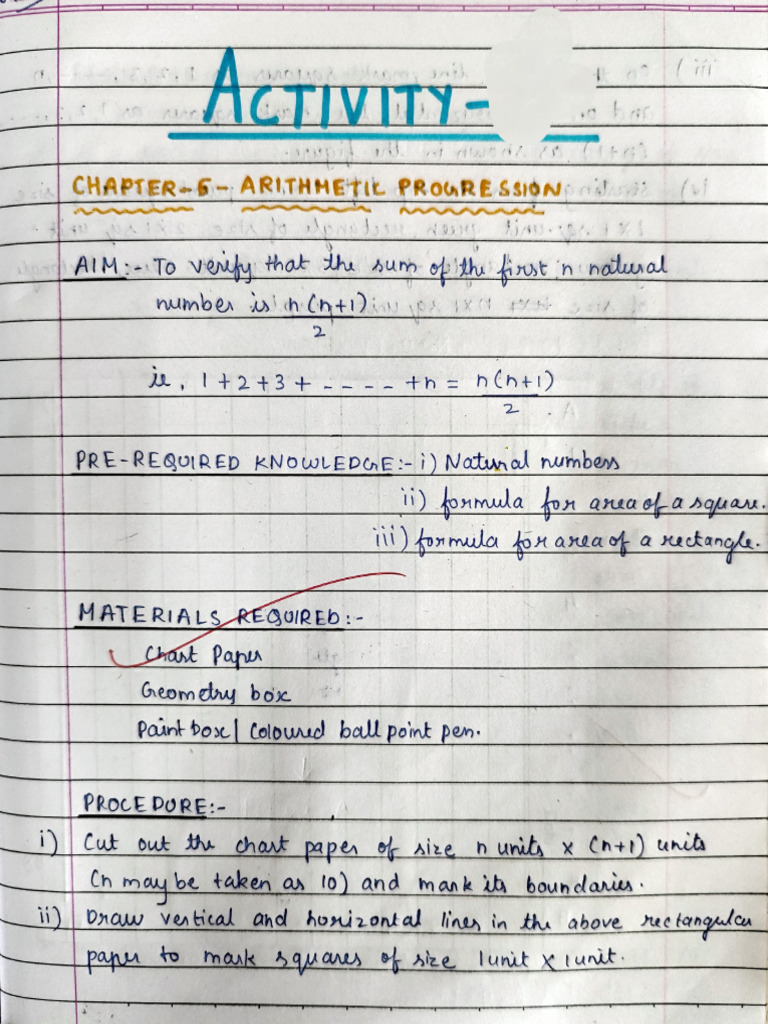 ACTIVITY-
CHAPTER-5- ARITHMETIC PROGRESSION
AIM:- To verify that the sum of the first n natural
number is n(n+1)
2
ie, 1+2+3+ - - - - +n = n(n+1)
2
PRE-REQUIRED KNOWLEDGE:- i) Natural numbers
ii) formula for area of a square.
iii) formula for area of a rectangle.
MATERIALS REQUIRED:-
Chart Paper
Geometry box
Paint box/ Coloured ball point pen.
PROCEDURE:-
i) Cut out the chart paper of size n units x (n+1) units
(n may be taken as 10) and mark its boundaries.
ii) Draw vertical and horizontal lines in the above rectangular
paper to mark squares of size 1unit x 1unit.